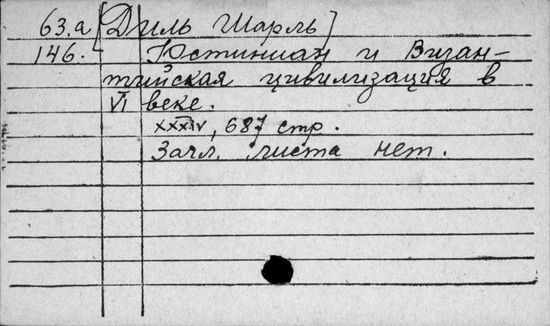 63.а [Диль Шарль]
146. Юстиниан и Визан-
тийская цивилизация в
VI веке.
XXXIV, 687 стр.
Загл. листа нет.